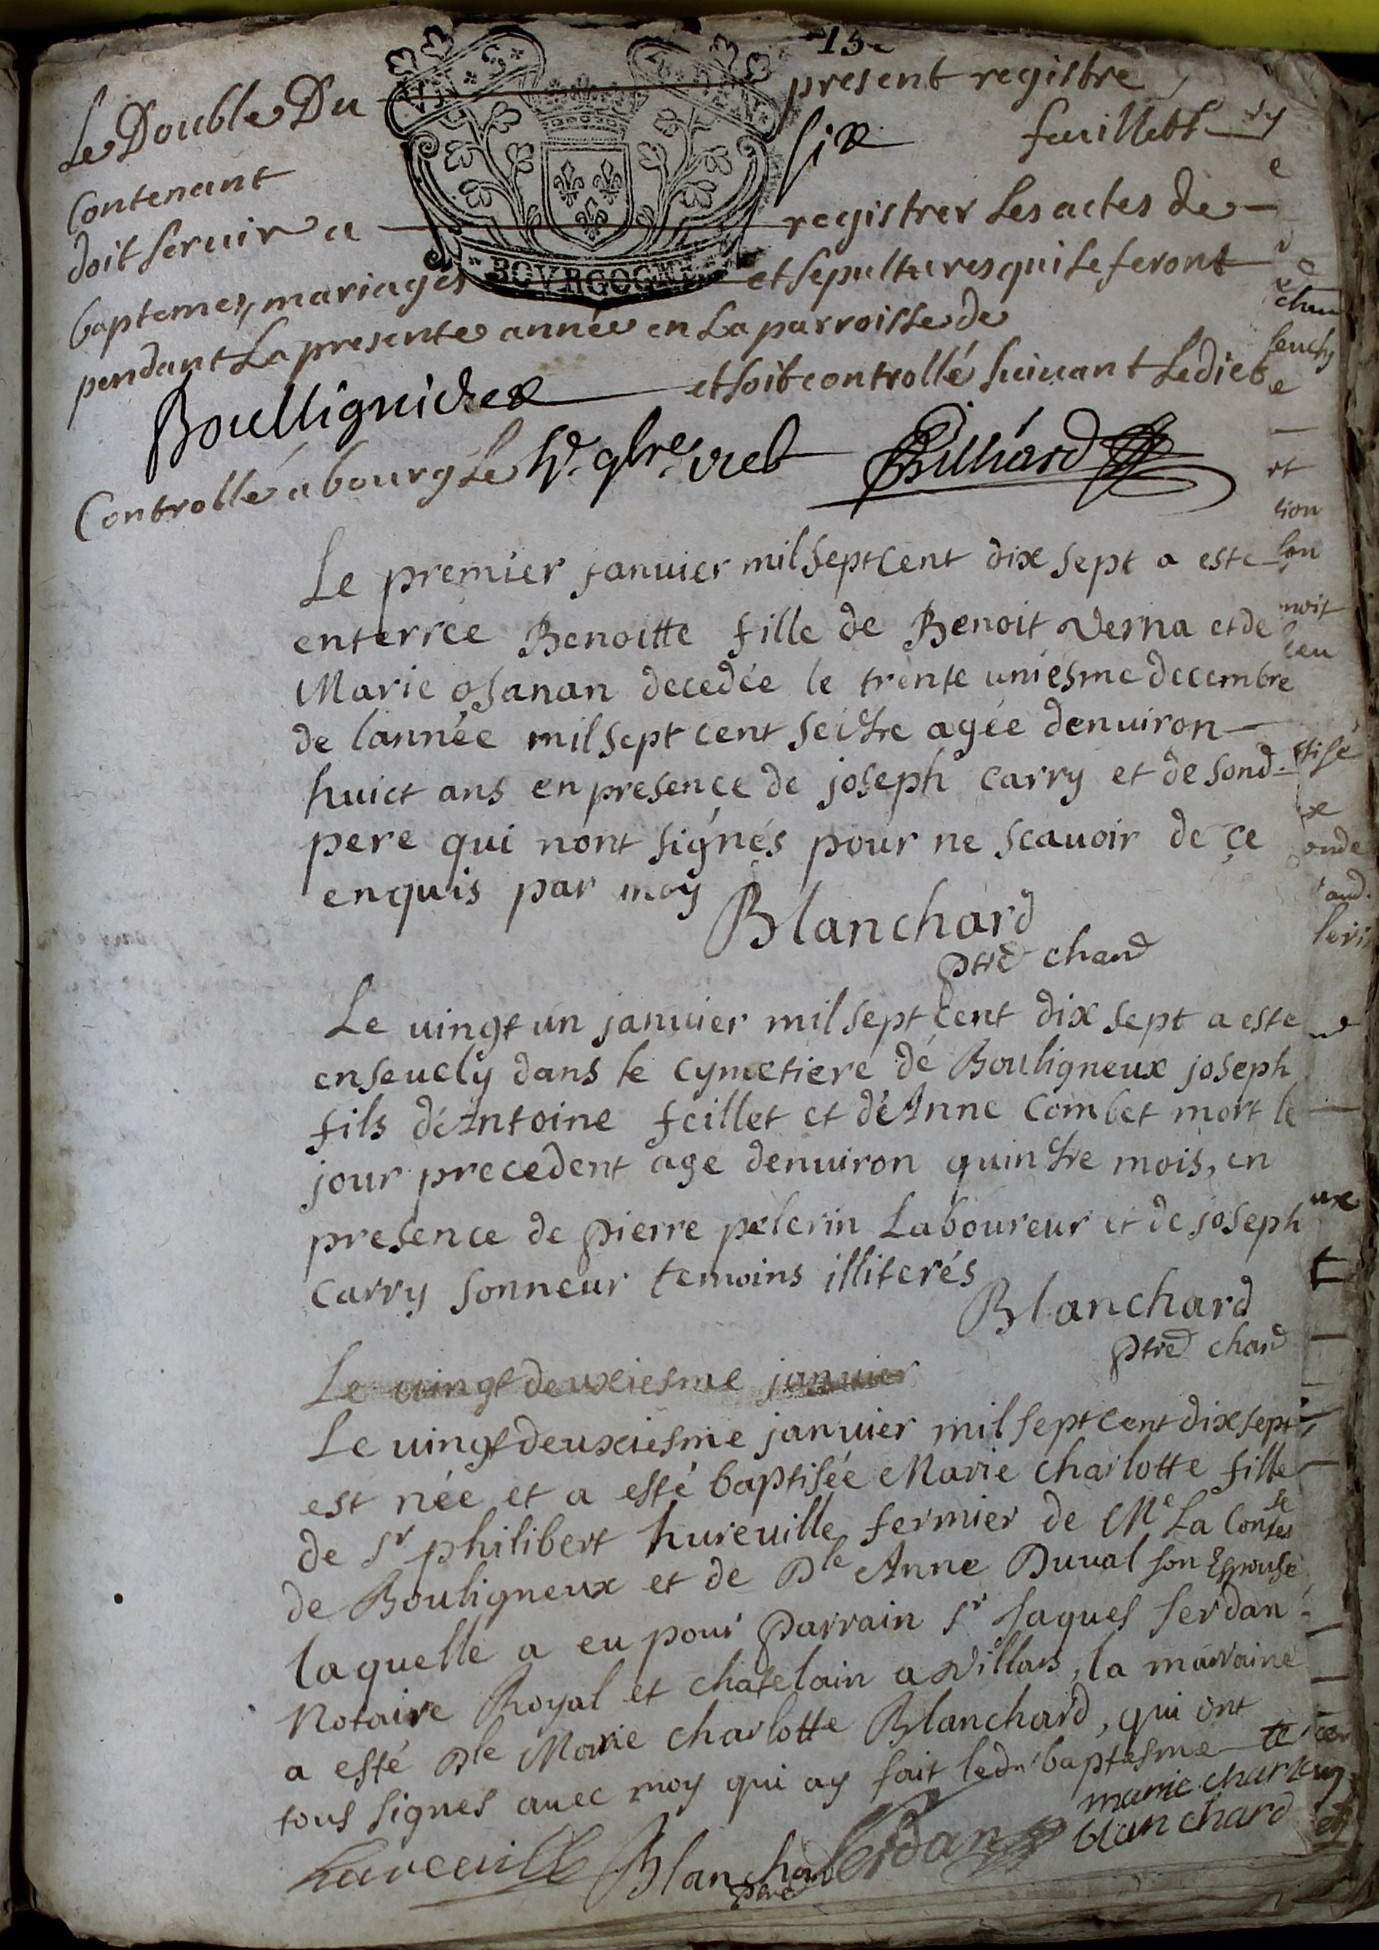 15e
Le Double Du present registre
Contenant six feuillets
doit servir a registrer Les actes de
baptemes, mariages et sepultures qui se feront
BOVRGOGNE
pendant La presente année en La parroisse de
Boullignieux et soit controllé suivant Ledict
Controllé a bourg Le 9bre Billiard
Le premier janvier mil sept cent dix sept a esté
enterrée Benoitte fille de Benoit Verna et de
Marie osanan decedée le trente uniesme decembre
de lannée mil sept cent seitze agée denuiron
huict ans en presence de joseph Carry et de sond.
pere qui nont signés pour ne scauoir de ce
enquis par moy Blanchard
ptre chand
Le uingt un januier mil sept cent dix sept a esté
enseuely dans le cymetiere de Bouligneux joseph
fils d'Antoine feillet et d'Anne Combet mort le
jour precedent age denuiron quintze mois, en
presence de pierre pelerin Laboureur et de joseph
Carry sonneur temoins illiterés
Blanchard
ptre chand
Le uingt deuxiesme januier
Le uingt deuxiesme januier mil sept cent dix sept
est née et a esté baptisée Marie charlotte fille
de Sr philibert hureuille fermier de Me La Contesse
de Bouligneux et de Dle Anne Duual son Epouse
laquelle a eu pour parrain Sr Jaques serdan
Notaire Royal et chatelain a Villars, la marraine
a esté Dle Marie charlotte Blanchard, qui ont
tous signes auec moy qui ay fait led. baptesme
marie charlotte
blanchard
hureuille Blanchard serdan
ptre